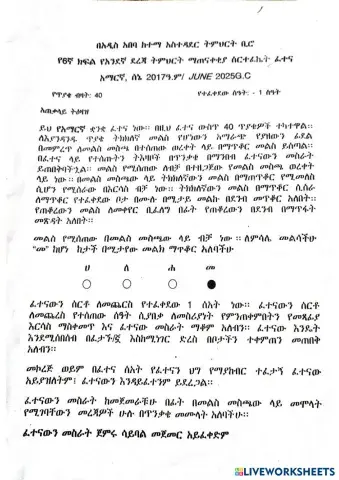 በአዲስ አበባ ከተማ አስተዳደር ትምህርት ቢሮ
የ6ኛ ክፍል የአንደኛ ደረጃ ትምህርት ማጠናቀቂያ ሰርተፊኬት ፈተና
አማርኛ, ሰኔ 2017ዓ.ም/ JUNE 2025G.C
የጥያቄ ብዛት: 40 የተፈቀደው ሰዓት: - 1 ሰዓት
አጠቃላይ ትዕዛዝ
ይህ የአማርኛ ቋንቋ ፈተና ነው። በዚህ ፈተና ውስጥ 40 ጥያቄዎች ተካተዋል።
ለእያንዳንዱ ጥያቄ ትክክለኛ መልስ የሆነውን አማራጭ የያዘውን ፊደል
በመምረጥ ለመልስ መስጫ በተሰጠው ወረቀት ላይ በማጥቆር መልስ ይሰጣል።
በፈተና ላይ የተሰጡትን ትእዛዞች በጥንቃቄ በማንበብ ፈተናውን መስራት
ይጠበቅባችኋል። መልስ የሚሰጠው ለብቻ በተዘጋጀው የመልስ መስጫ ወረቀት
ላይ ነው። በመልስ መስጫው ላይ ትክክለኛውን መልስ በማጠቆር የሚመለስ
ሲሆን የሚሰራው በእርሳስ ብቻ ነው። ትክክለኛውን መልስ በማጥቆር ሲሰራ
ለማጥቆር የተፈቀደው ቦታ በሙሉ በሚታይ መልኩ በደንብ መጥቆር አለበት።
የጠቆረውን መልስ ለመቀየር ቢፈለግ በፊት የጠቆረውን በደንብ በማጥፋት
መጽዳት አለበት።
መልስ የሚሰጠው በመልስ መስጫው ላይ ብቻ ነው ። ለምሳሌ መልሳችሁ
“መ” ከሆነ ከታች በሚታየው መልክ ማጥቆር አለባችሁ
ሀ ለ ሐ መ
ፈተናውን ሰርቶ ለመጨርስ የተፈቀደው 1 ሰአት ነው። ፈተናውን ሰርቶ
ለመጨረስ የተሰጠው ሰዓት ሲያበቃ ለመስሪያነት የምንጠቀምበትን የመጻፊያ
እርሳስ ማስቀመጥ እና ፈተናው መስራት ማቆም አለብን። ፈተናው እንዴት
እንደሚሰበሰብ በፈታኙ/ኟ እስከሚነገር ድረስ በቦታችን ተቀምጠን መጠበቅ
አለብን።
መኮረጅ ወይም በፈተና ሰአት የፈተናን ህግ የማያከብር ተፈታኝ ፈተናው
አይያዝለትም፤ ፈተናውን እንዳይፈተንም ይደረጋል።
ፈተናውን መስራት ከመጀመራችሁ በፊት በመልስ መስጫው ላይ መሞላት
የሚገባቸውን መረጃዎች ሁሉ በጥንቃቄ መሙላት አለባችሁ።
ፈተናውን መስራት ጀምሩ ሳይባል መጀመር አይፈቀድም
LIVEWORKSHEETS